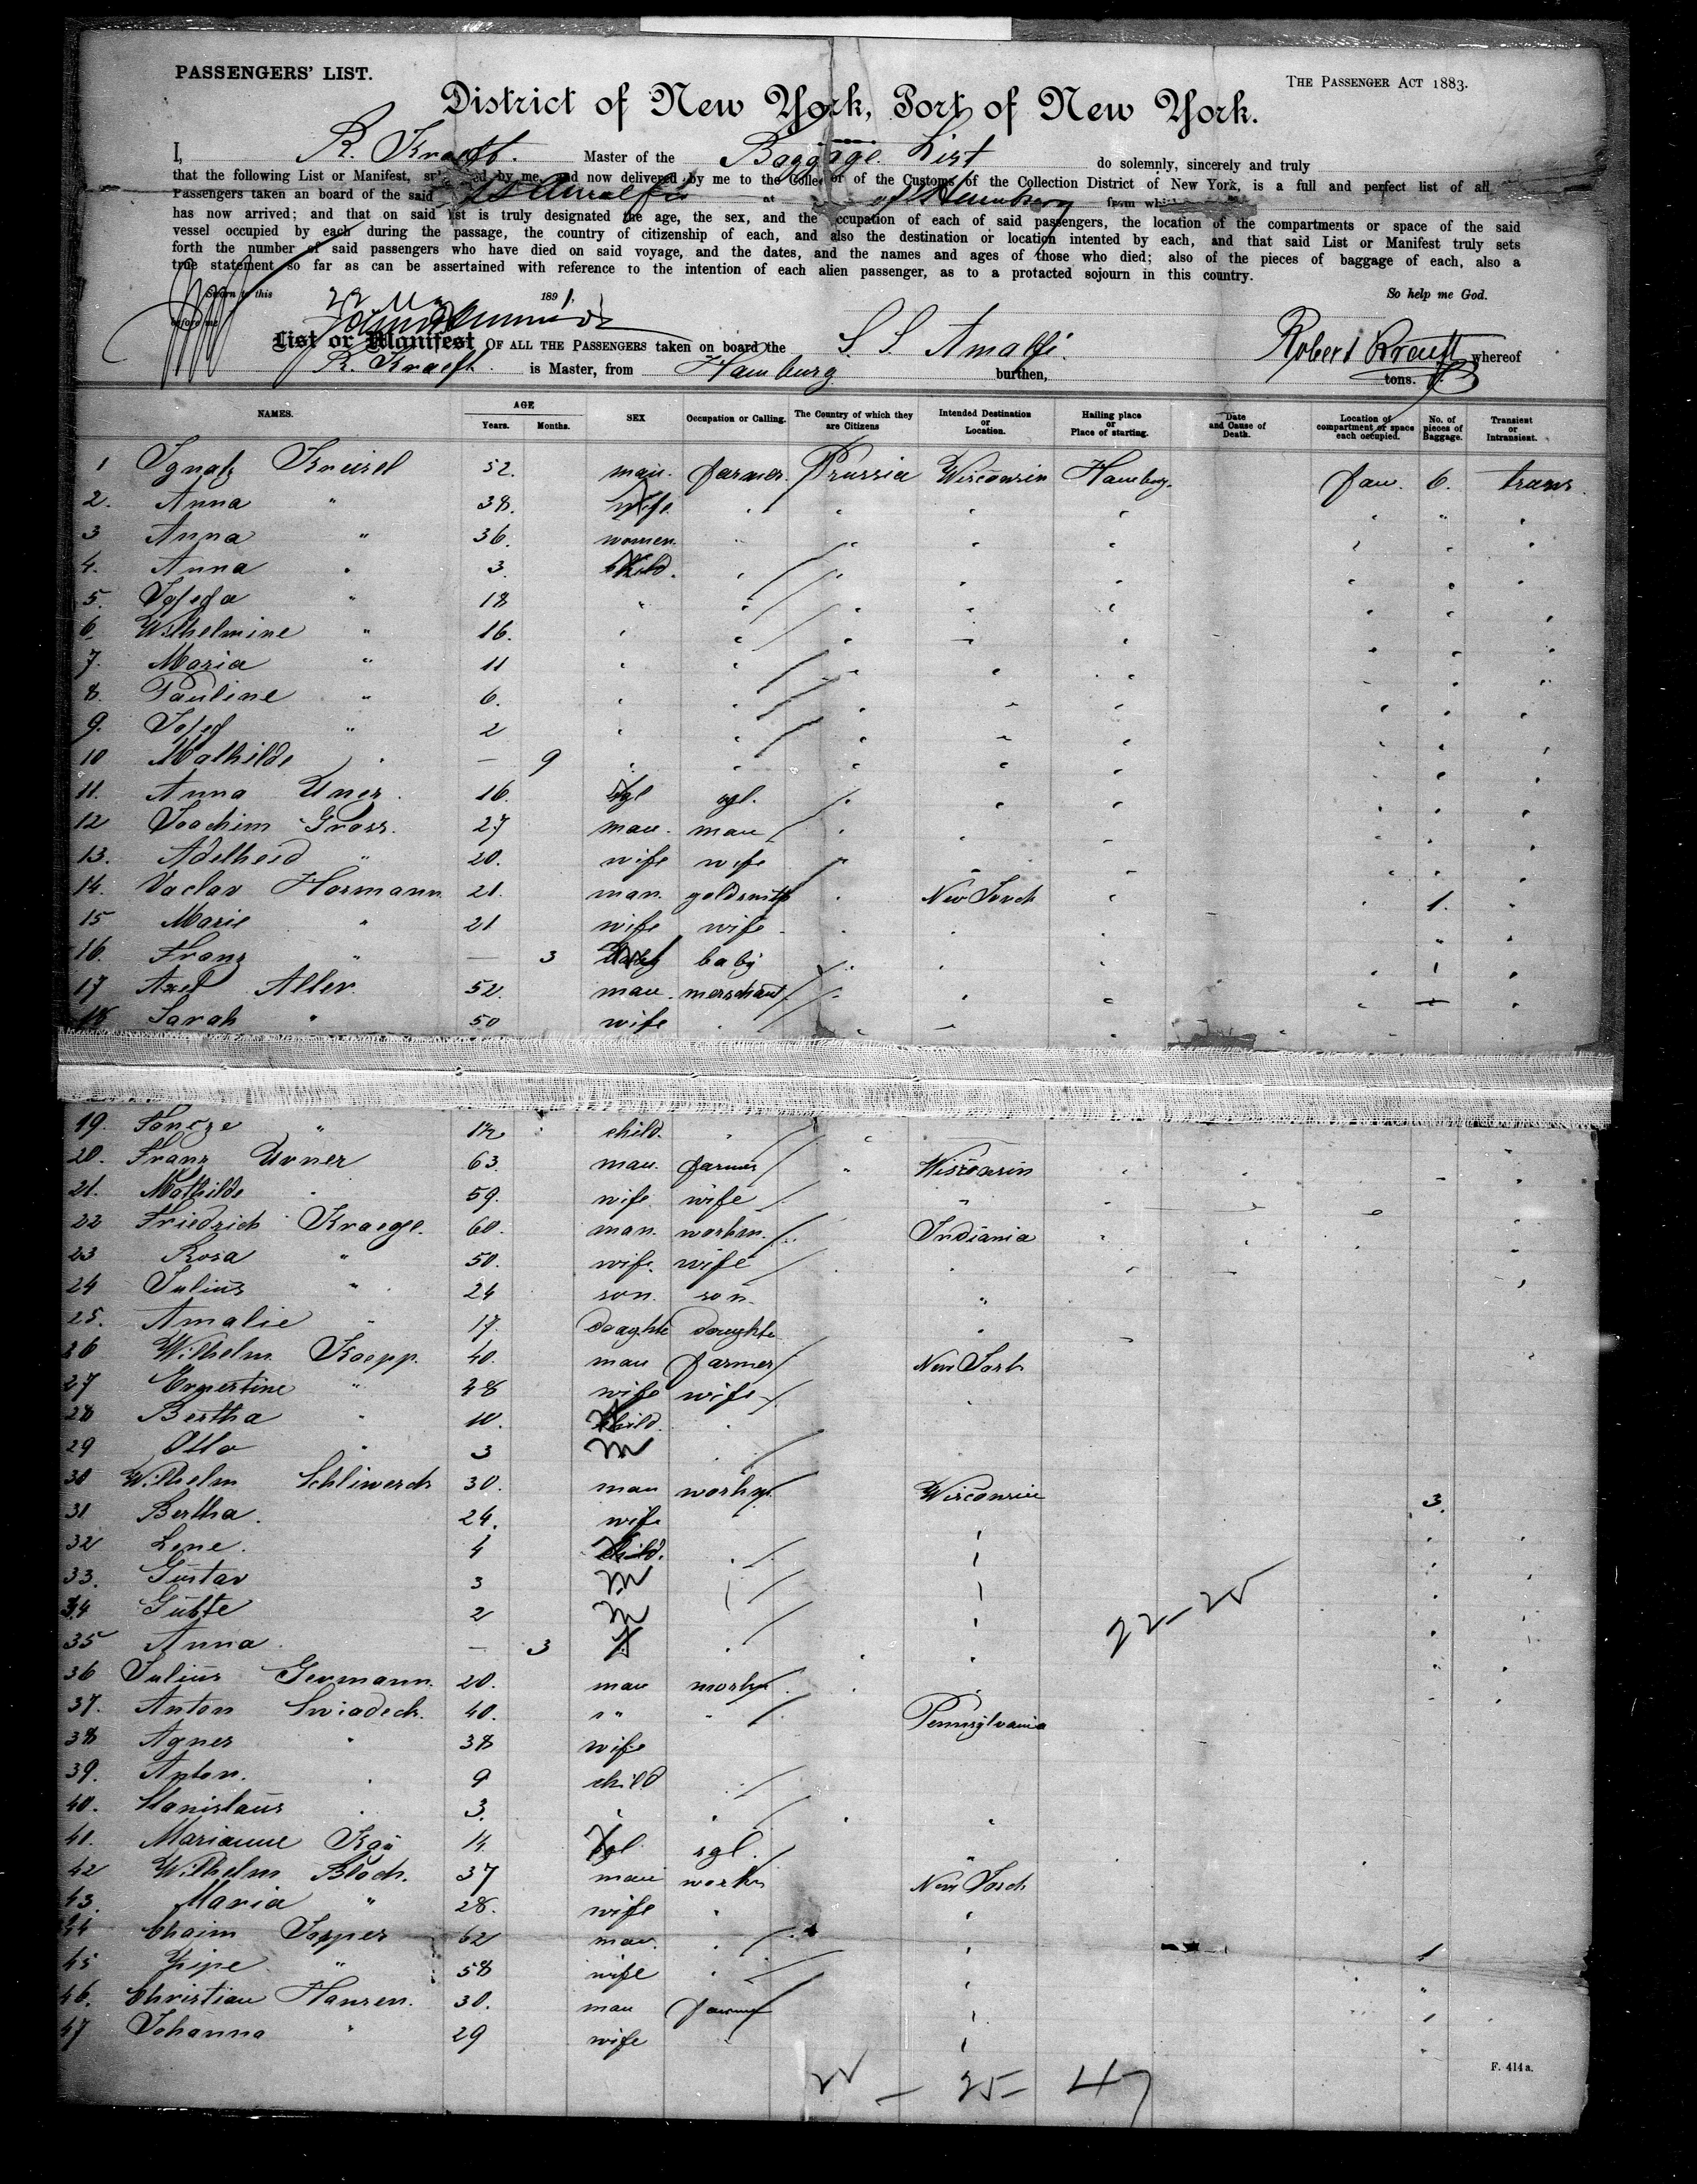 PASSENGERS' LIST.
THE PASSENGER ACT 1883.
District of New York, Port of New York.
I, R. Kraeft. Master of the Baggage List do solemnly, sincerely and truly
that the following List or Manifest, by me, and now delivered by me to the Collector of the Customs of the Collection District of New York, is a full and perfect list of all
Passengers taken an board of the said SS Amalfi at of Hamburg from
has now arrived; and that on said list is truly designated the age, the sex, and the occupation of each of said passengers, the location of the compartments or space of the said
vessel occupied by each during the passage, the country of citizenship of each, and also the destination or location intented by each, and that said List or Manifest truly sets
forth the number of said passengers who have died on said voyage, and the dates, and the names and ages of those who died; also of the pieces of baggage of each, also a
true statement so far as can be assertained with reference to the intention of each alien passenger, as to a protacted sojourn in this country.
Sworn to this 22 1891. So help me God.
before me
List or Manifest OF ALL THE PASSENGERS taken on board the S. S. Amalfi. Robert Kraeft whereof
R. Kraeft. is Master, from Hamburg burthen, tons.
NAMES. AGE Years. Months. SEX Occupation or Calling. The Country of which they are Citizens Intended Destination or Location. Hailing place or Place of starting. Date and Cause of Death. Location of compartment or space each occupied. No. of pieces of Baggage. Transient or Intransient.
1 Ignatz Kneisel 52. man. farmer. Prussia Wisconsin Hamburg. 6. trans.
2. Anna " 38. wife
3 Anna " 36. women.
4. Anna " 3. child.
5. Josefa " 18
6. Wilhelmine " 16.
7. Maria " 11
8. Pauline " 6.
9. Josef " 2
10 Mathilde " — 9
11. Anna 16. sgl sgl.
12 Joachim Gross. 27 man. man
13. Adelheid " 20. wife wife
14. Vaclav Hormann 21. man. goldsmith New Yorck 1.
15 Marie " 21 wife wife
16. Franz " — 3 baby baby 1
17 Axel Aller. 52. man. merschant
18 Sarah " 50 wife
19. " child.
20. Franz Urner 63. man. farmer Wisconsin
21. Mathilde 59. wife wife
22 Friedrich Kraege. 60. man. workm. Indiania
23 Rosa " 50. wife. wife
24 Julius " 24 son. son.
25. Amalie " 17. daughte daughte
26 Wilhelm Koepp. 40. man farmer New York
27 Ernestine " 38 wife wife
28 Bertha 10. child.
29 Otto 3 m
30 Wilhelm Schliwesch 30. man workm. Wisconsin 3.
31 Bertha. 24. wife
32 Lene. 4 child.
33. Gustav 3 m
34 2 m
35 Anna — 3 f
22–25
36 Julius Germann. 20. man workm
37. Anton Swiadech. 40. " Pennsylvania
38 Agnes " 38 wife
39. Anton. 9 child
40. Stanislaus 3.
41. Marianne 14 sgl. sgl.
42 Wilhelm Bloch. 37 man workm New Yorck
43. Maria " 28. wife
44 Chaim 62 man. 1
45 " 58 wife "
46. Christian Hansen. 30. man farmer 1
47 Johanna " 29 wife
22 – 25 – 47
F. 414a.